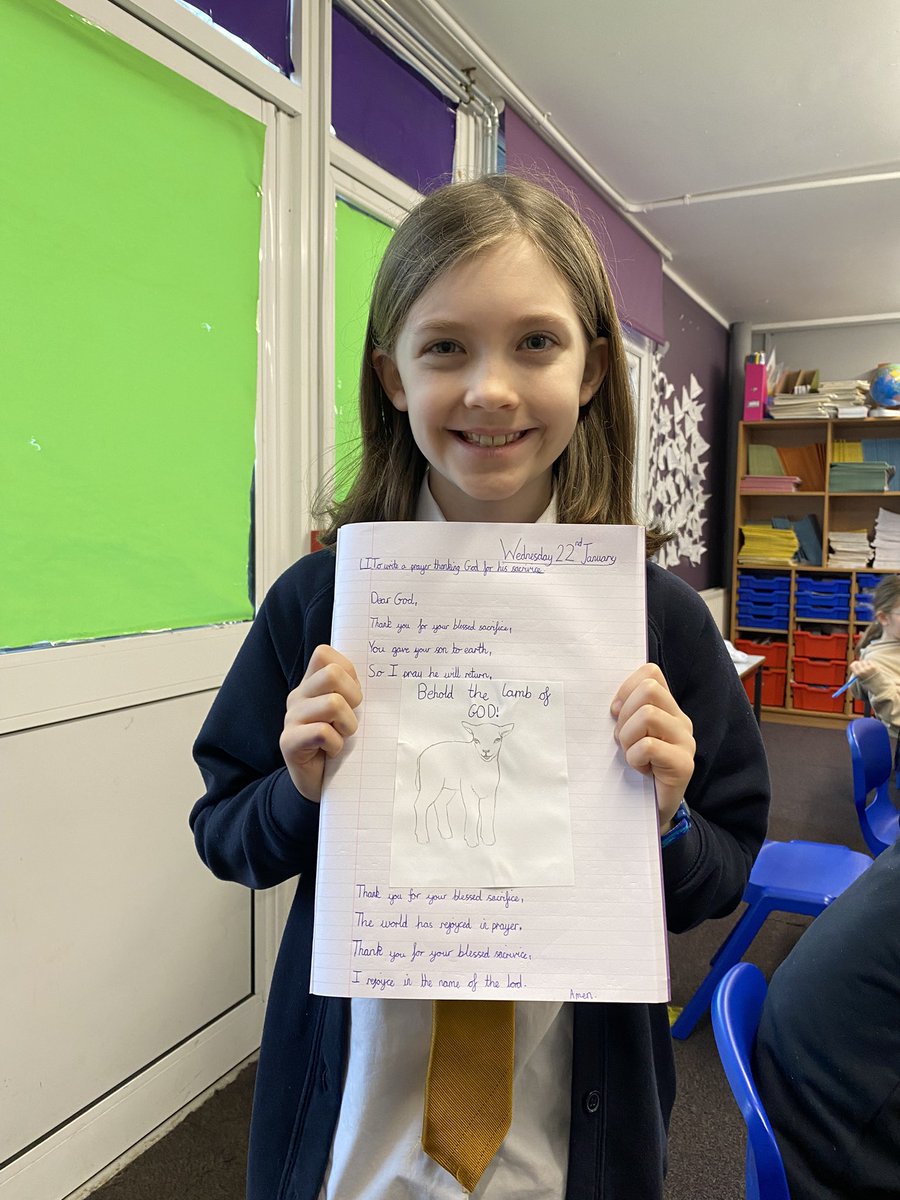 Wednesday 22nd January
LI To write a prayer thanking God for his sacrivice.
Dear God,
Thank you for your blessed sacrifice,
You gave your son to earth,
So I pray he will return,
Behold the lamb of
GOD!
Thank you for your blessed sacrifice,
The world has rejoyced in prayer,
Thank you for your blessed sacrivice,
I rejoyce in the name of the lord.
Amen.